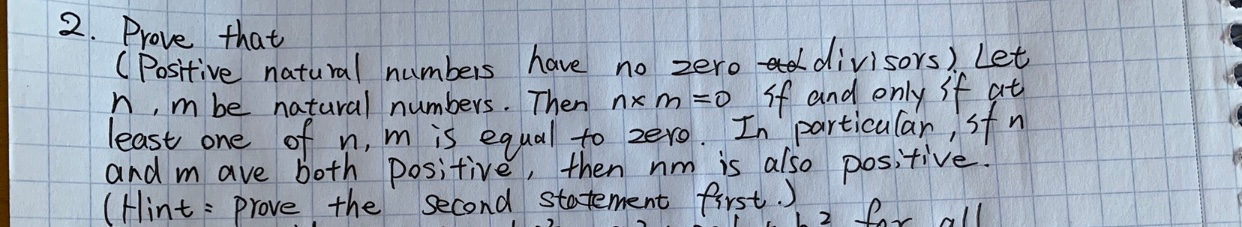 2. Prove that
(Positive natural numbers have no zero divisors) Let
n, m be natural numbers. Then n×m=0 if and only if at
least one of n, m is equal to zero. In particular, if n
and m are both positive, then nm is also positive.
(Hint: prove the second statement first.)
for all